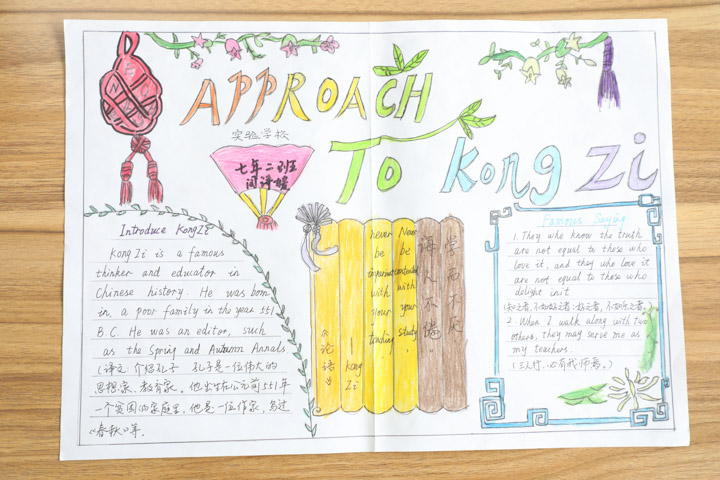 APPROACH
To Kong Zi
实验学校
七年二班
Introduce KongZi
KongZi is a famous
thinker and educator in
Chinese history. He was born
in a poor family in the year 551
B.C. He was an editor, such
as the Spring and Autumn Annals
(译文 介绍孔子 孔子是一位伟大的
思想家、教育家。他出生在公元前551年
一个贫困的家庭里,他是一位作家,
《春秋》等.
《论语》
Kong
Zi
never
be
with
your
Never
be
contented
with
your
study,
诲人不倦。
学而不厌
Famous Saying
1. They who know the truth
are not equal to those who
love it, and they who love it
are not equal to those who
delight in it
(知之者,不如好之者;好之者,不如乐之者。)
2. When I walk along with two
others, they may serve me as
my teachers.
(三人行,必有我师焉。)